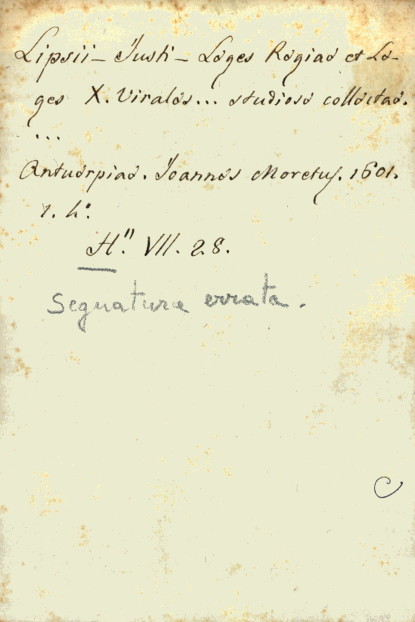 Lipsii - Justi - Leges Regiae et Le-
ges X. Virales... studiose collectae.
...
Antuerpiae. Joannes Moretus. 1601.
1. 4°.
H." VII. 28.
Segnatura errata.
C